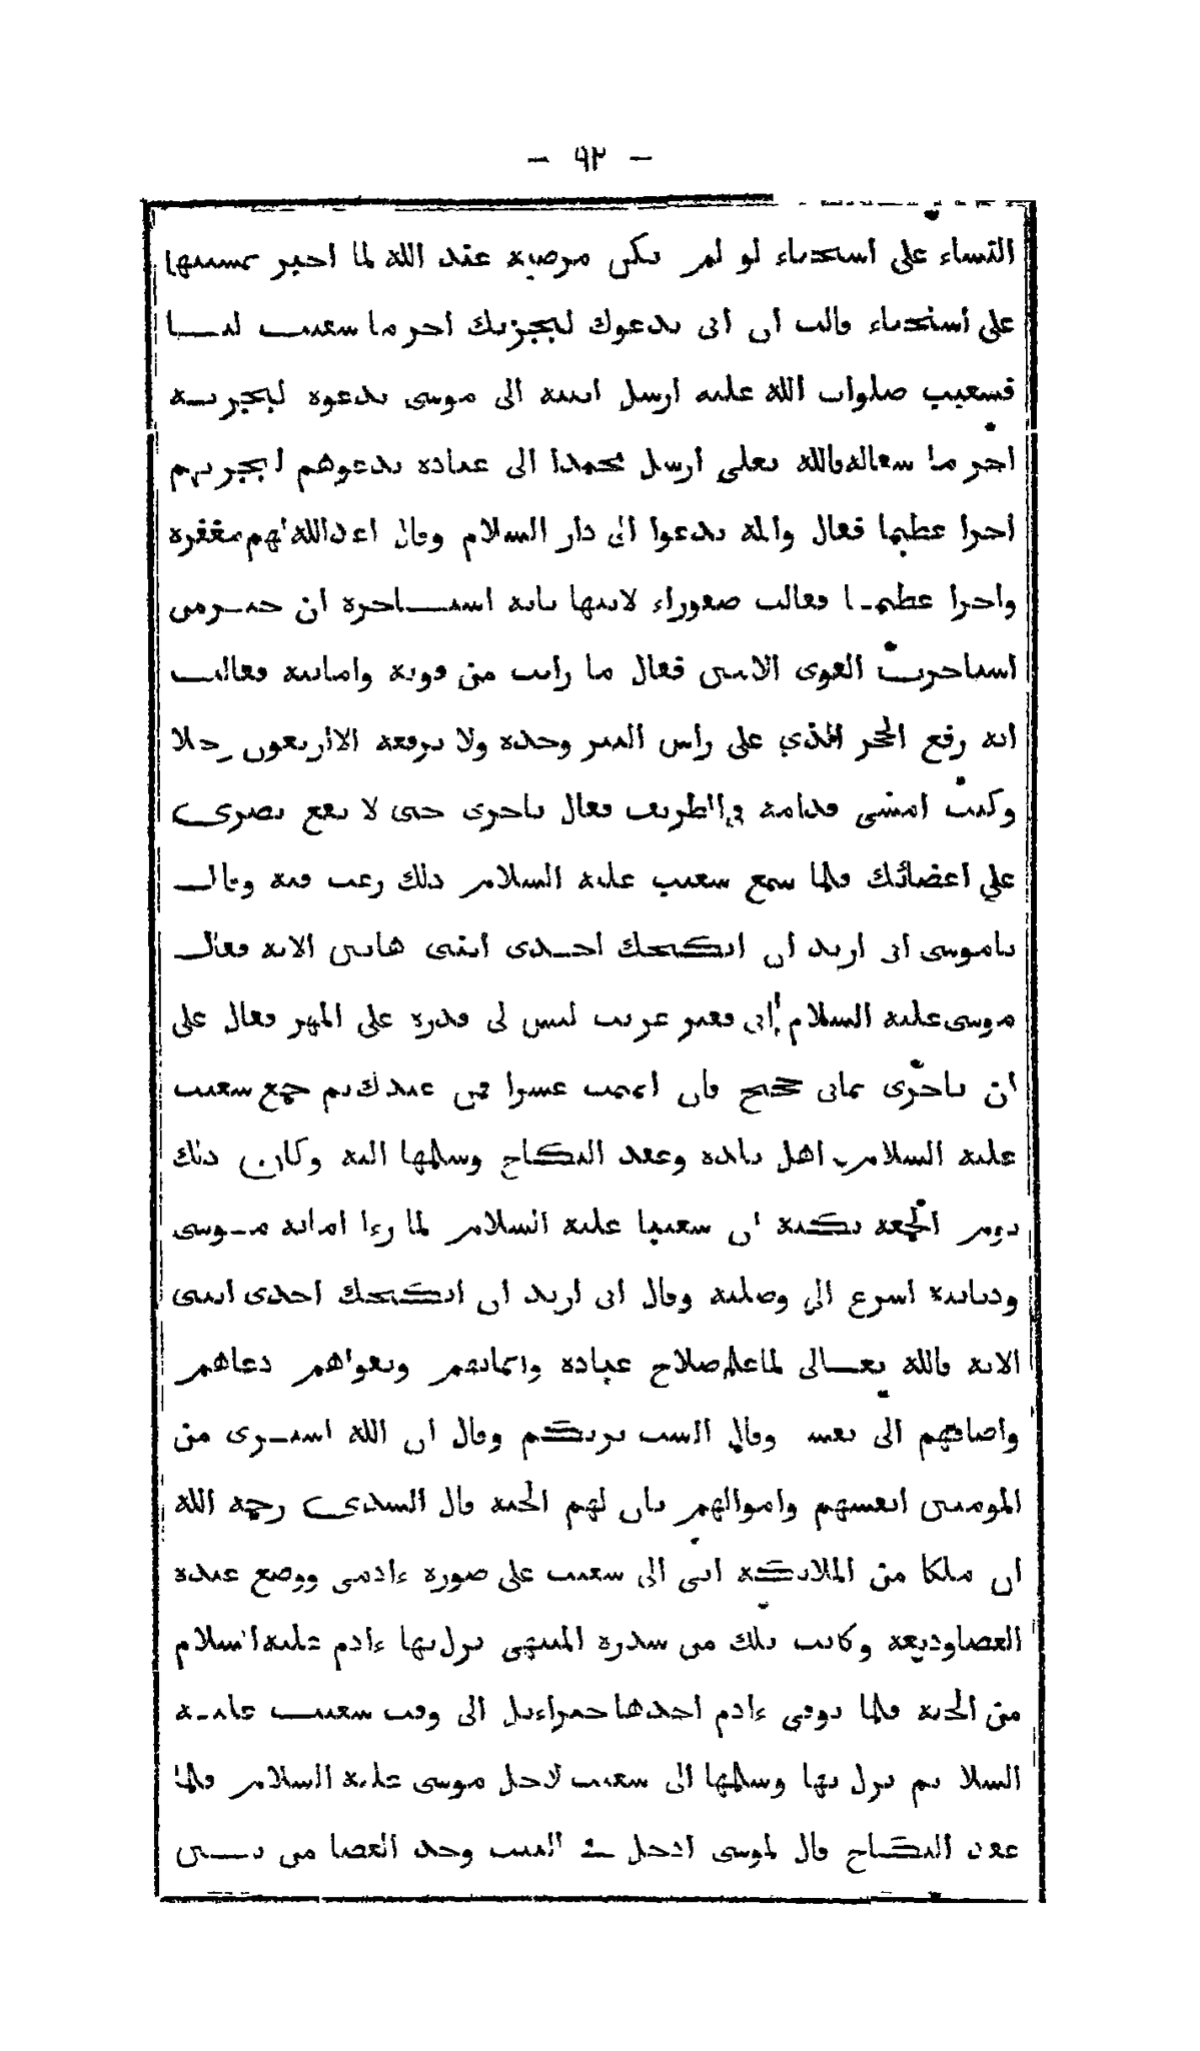 - ٩٢ -
النساء على استحياء لو لم يكن مرضية عند الله لما اخبر بمشيها
على استحياء قالت ان ابى يدعوك ليجزيك اجر ما سقيت لنــا
فشعيب صلوات الله عليه ارسل ابنته الى موسى يدعوه ليجزيــه
اجر ما سقاله فالله تعلى ارسل محمدا الى عباده يدعوهم ليجزيهم
اجرا عظيما فقال والله يدعوا الى دار السلام وقال اعد الله لهم مغفره
واجرا عظيمـا فقالت صفوراء لابيها ياابه استــاجره ان خيـر من
استاجرت القوى الامين فقال ما رايت من قوته وامانته فقالت
انه رفع الحجر الذي على راس البير وحده ولا يرفعه الا اربعون رجلا
وكنت امشى قدامه في الطريق فقال تاخرى حتى لا يقع بصرى
على اعضائك فلما سمع شعيب عليه السلام ذلك رغب فيه وقال
ياموسى انى اريد ان انكحك احـدى ابنتى هاتين الايه فقال
موسى عليه السلام انى فقير غريب ليس لى قدره على المهر فقال على
ان تاجرنى ثمانى حجج فان اتممت عشرا فمن عندك ثم جمع شعيب
عليه السلام اهل بلده وعقد النكاح وسلمها اليه وكان ذلك
يوم الجمعه نكته ان شعيبا عليه السلام لما رءا امانه مـوسى
وديانته اسرع الى وصلته وقال انى اريد ان انكحك احدى ابنتى
الايه فالله تعــالى لما علم صلاح عباده وايمانهم وتقواهم دعاهم
واضافهم الى نفسه وقال الست بربكم وقال ان الله اشتـرى من
المومنين انفسهم واموالهم بان لهم الجنه قال السدى رحمه الله
ان ملكا من الملايكه اتى الى شعيب على صوره ءادمى ووضع عنده
العصا وديعه وكانت تلك من سدره المنتهى نزل بها ءادم عليه السلام
من الجنه فلما توفى ءادم اخذها جبراءيل الى وقت شعيب عليـه
السلا ثم نزل بها وسلمها الى شعيب لاجل موسى عليه السلام فلما
عقد النكاح قال لموسى ادخل فى البيت وخذ العصا من بــين